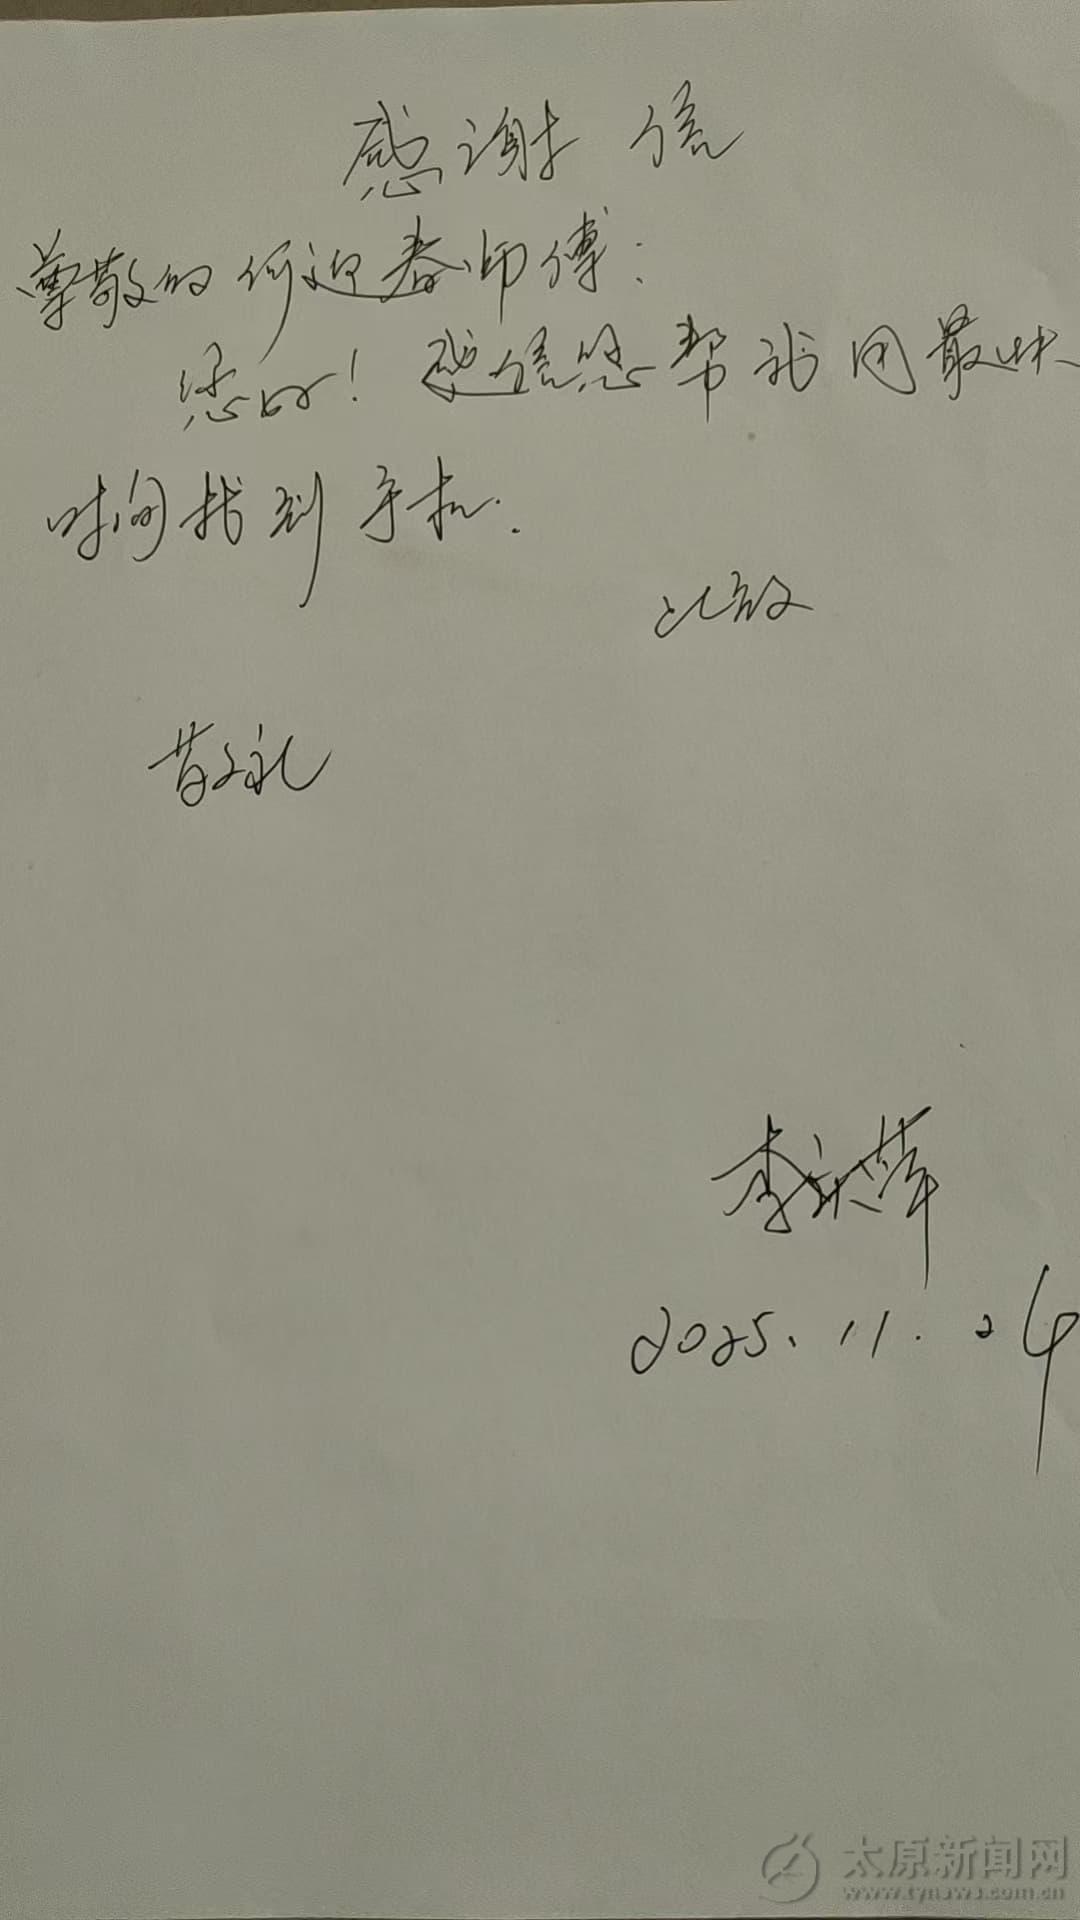 感谢信
尊敬的何迎春师傅：
您好！感信您帮我用最快
时间找到手机.
此致
敬礼
李
2025.11.24
太原新闻网
www.tynews.com.cn